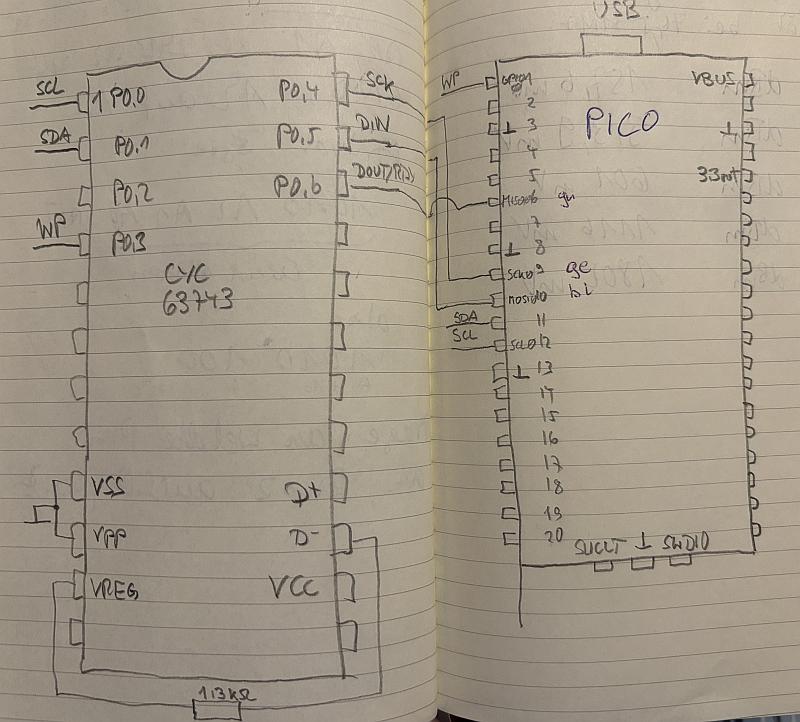 SCL
1 P0,0
P0,4
SCK
SDA
P0,1
P0,5
DIN
P0,2
P0,6
WP
P0,3
CYC
63743
VSS
D+
VPP
D-
VREG
VCC
1,3 kΩ
USB
WP
VBUS
2
⊥ 3
PICO
⊥
4
5
6
gn
7
⊥ 8
SCK0 9
ge
MOSI 10
bl
SDA
11
SCL
12
⊥ 13
15
16
17
18
19
20
⊥ SWDIO